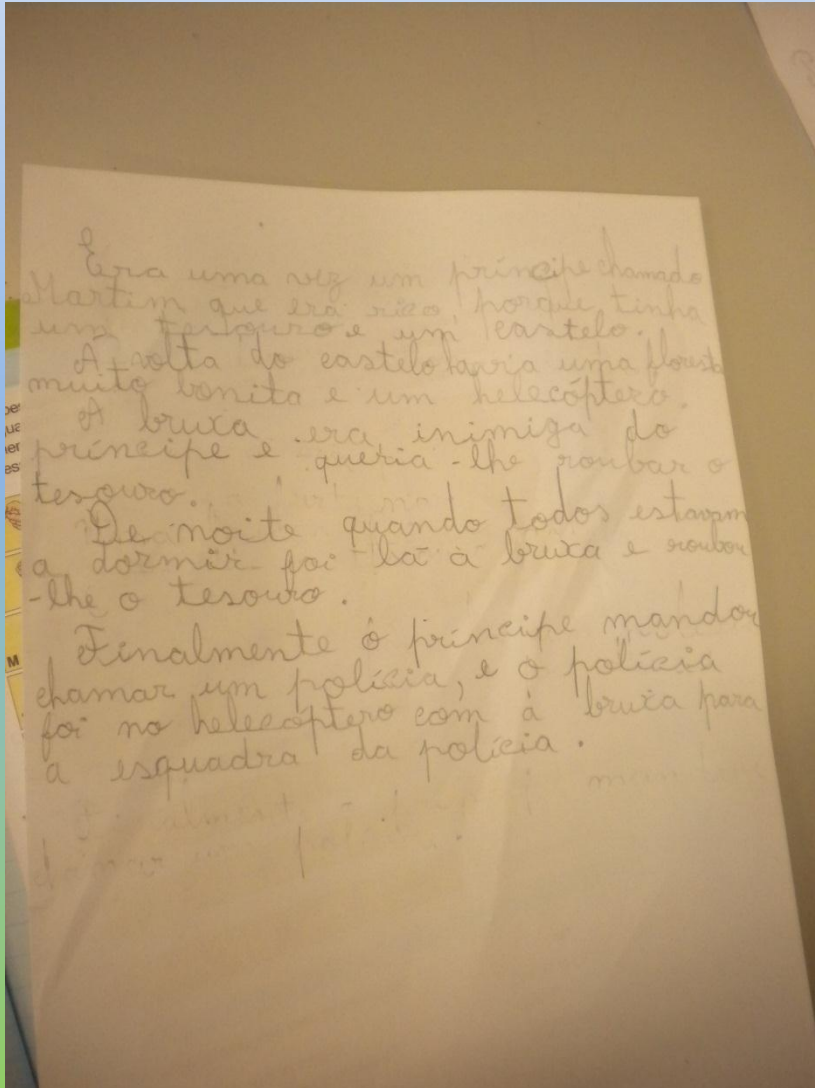 Era uma vez um príncipe chamado
Martim que era rico, porque tinha
um tesouro e um castelo.
À volta do castelo havia uma floresta
muito bonita e um helecóptero.
A bruxa era inimiga do
príncipe e queria-lhe roubar o
tesouro.
De noite quando todos estavam
a dormir foi lá à bruxa e roubou
-lhe o tesouro.
Finalmente o príncipe mandou
chamar um polícia, e o polícia
foi no helecóptero com à bruxa para
a esquadra da polícia.